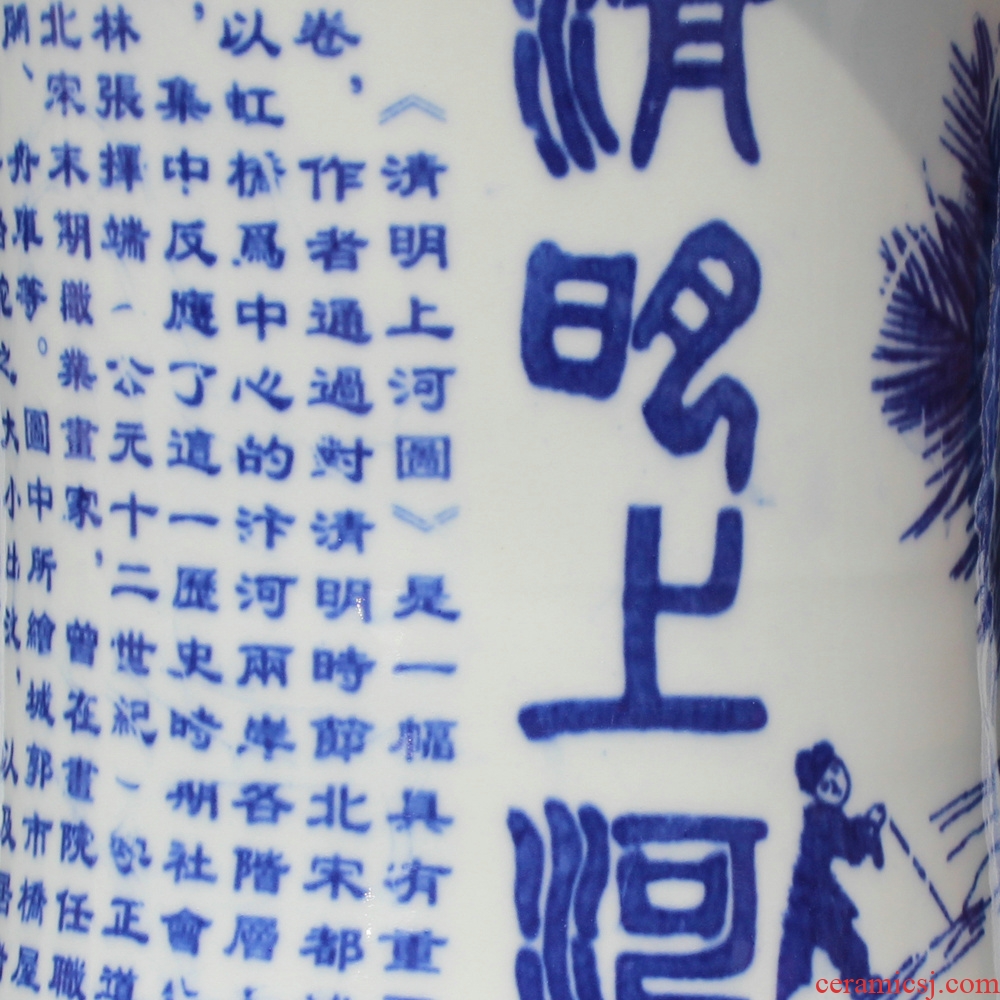 清明上河
《清明上河圖》是一幅具有重
卷，作者通過對清明時節北宋都
以虹橋爲中心的汴河兩岸各階層
，集中反應了這一歷史時期社會
林張擇端（公元十二世紀）正道
北宋末期職業畫家，曾在畫院任職
舟車等。圖中所繪城郭市橋屋
之大小比
以及
ceramicsj.com